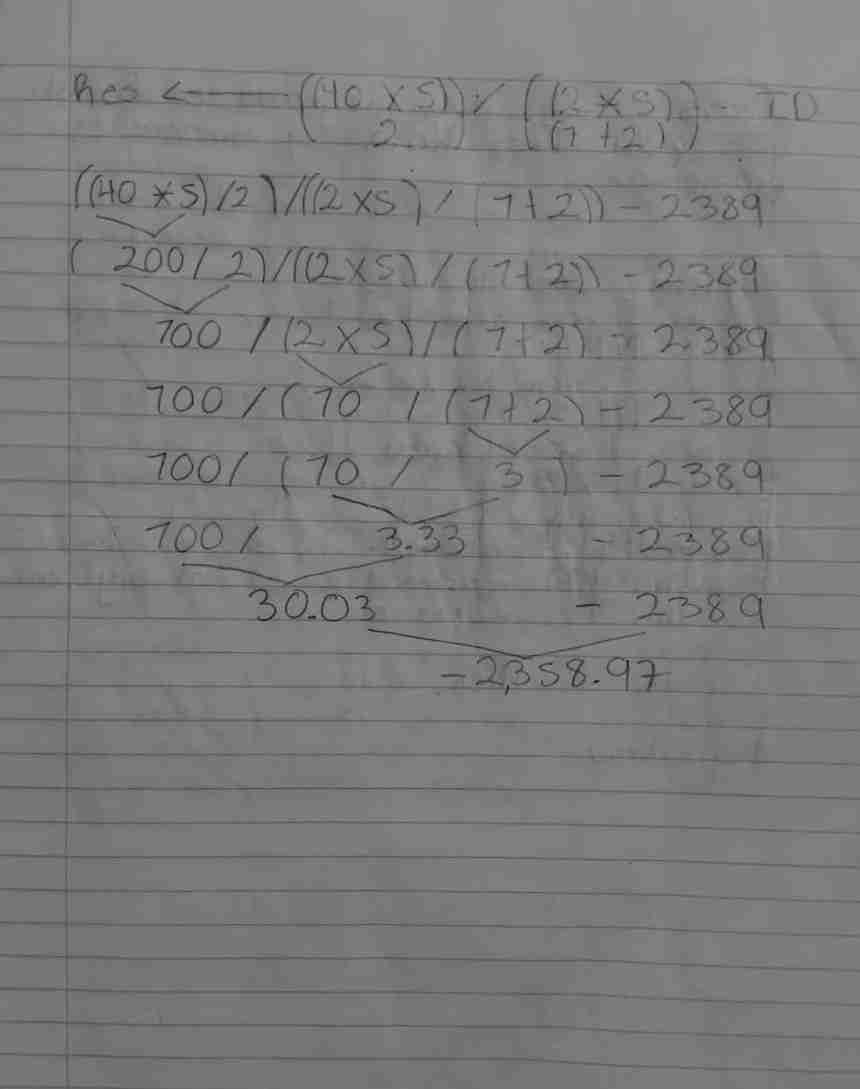 Res ← ((40 × 5)) / ((2 * 5)) - ID
2 (1 + 2)
((40 * 5) / 2) / ((2 × 5) / (1 + 2)) - 2389
( 200 / 2) / ((2 × 5) / (1 + 2)) - 2389
100 / (2 × 5) / (1 + 2) - 2389
100 / (10 / (1 + 2) - 2389
100 / (10 / 3 ) - 2389
100 / 3.33 - 2389
30.03 - 2389
-2,358.97